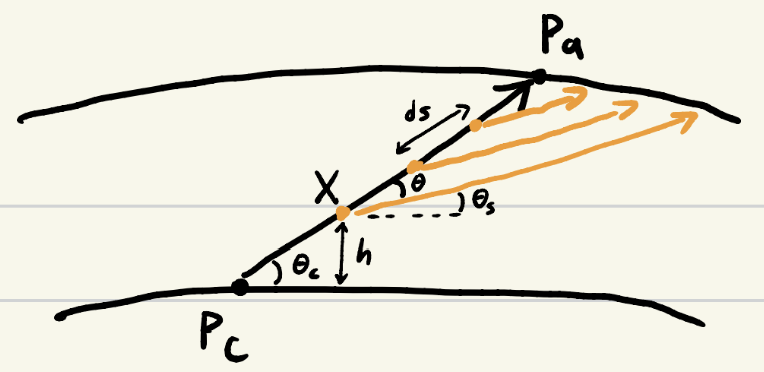 Pa
ds
X
θ
θs
θc
h
Pc